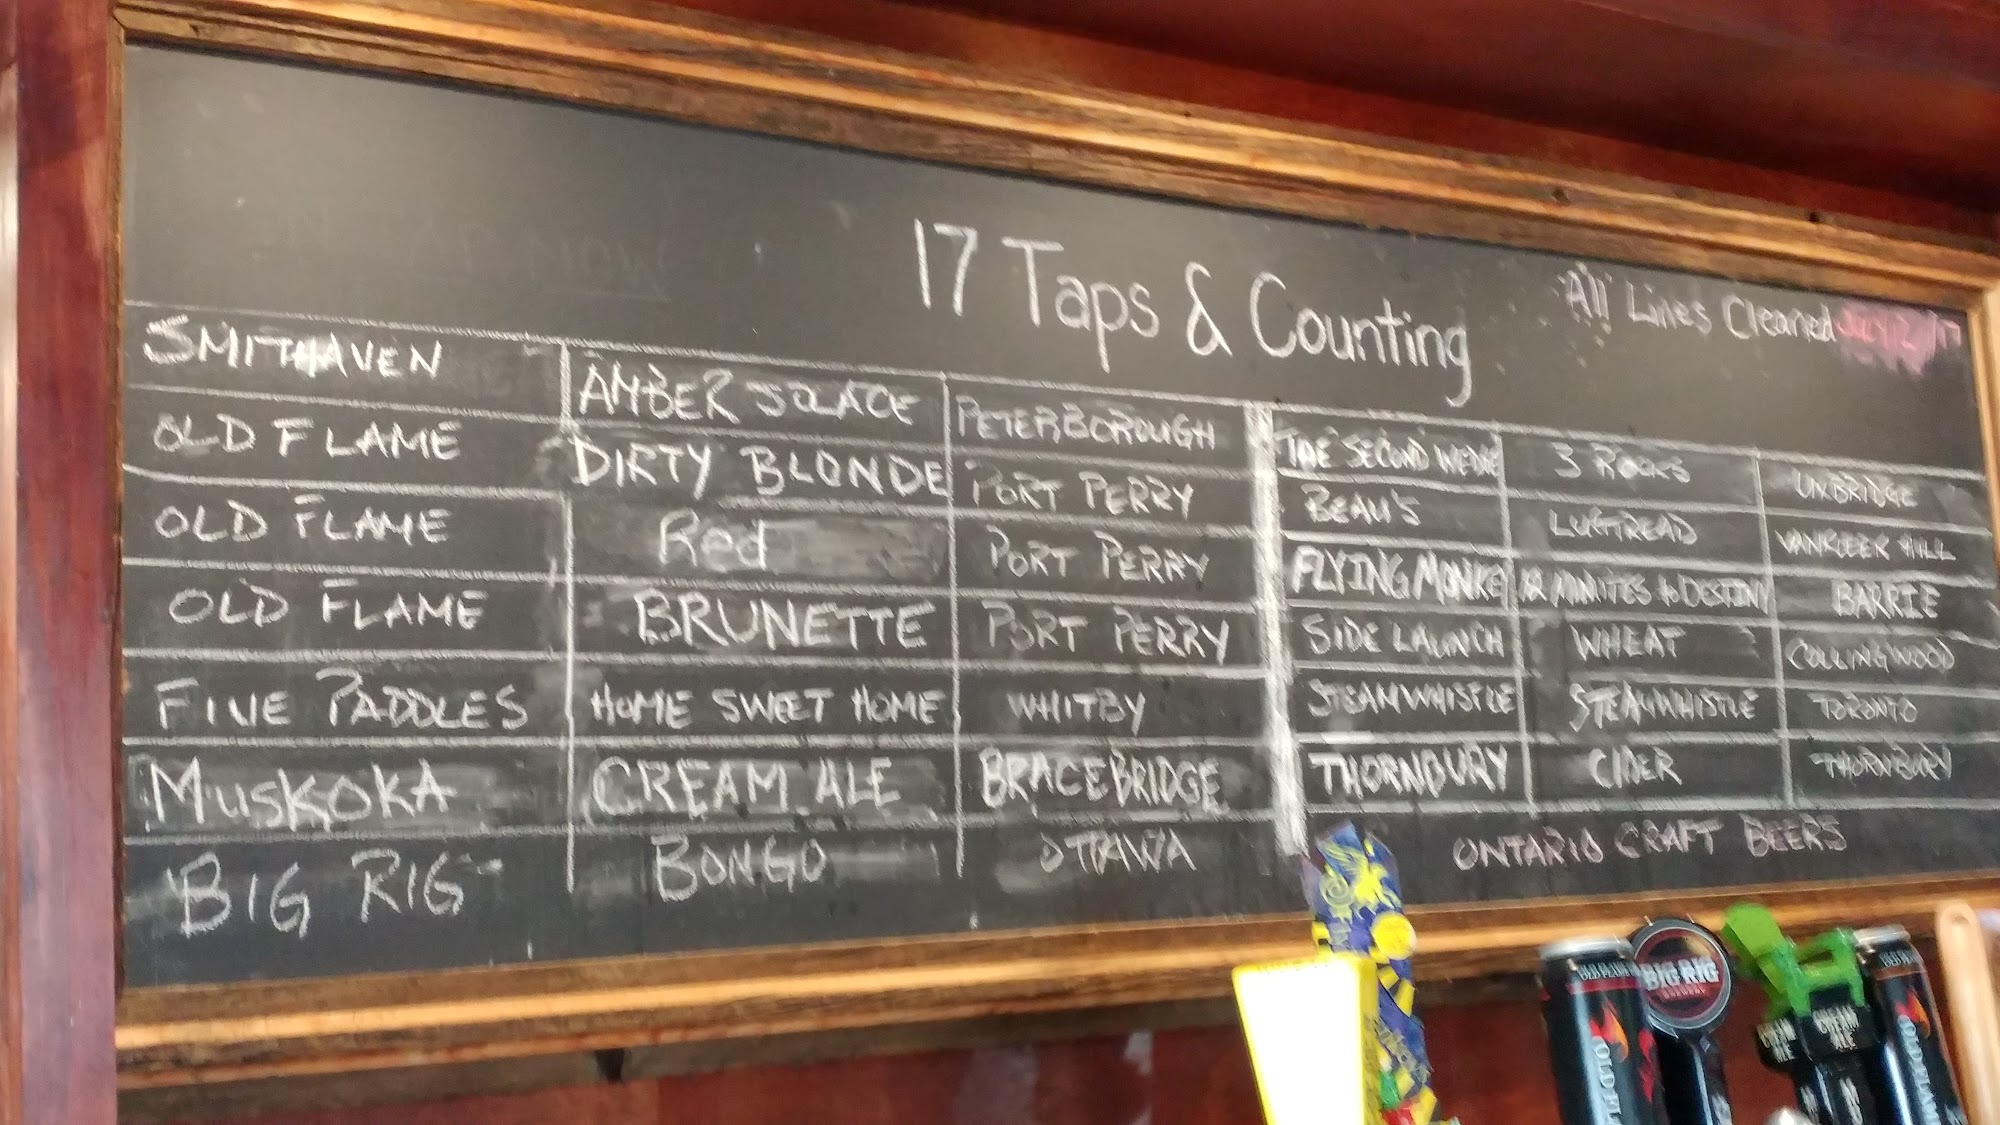 17 Taps & Counting
All Lines Cleaned
SMITHAVEN AMBER SOLACE PETERBOROUGH
OLD FLAME DIRTY BLONDE PORT PERRY
OLD FLAME Red PORT PERRY
OLD FLAME BRUNETTE PORT PERRY
FIVE PADDLES HOME SWEET HOME WHITBY
MUSKOKA CREAM ALE BRACEBRIDGE
BIG RIG BONGO OTTAWA
THE SECOND WEDGE 3 ROCKS UXBRIDGE
BEAU'S LUGTREAD VANKLEEK HILL
FLYING MONKEY 12 MINUTES to DESTINY BARRIE
SIDE LAUNCH WHEAT COLLINGWOOD
STEAMWHISTLE STEAMWHISTLE TORONTO
THORNBURY CIDER THORNBURY
ONTARIO CRAFT BEERS
OLD FLAME
BIG RIG
CREAM ALE
CREAM ALE
OLD FLAME